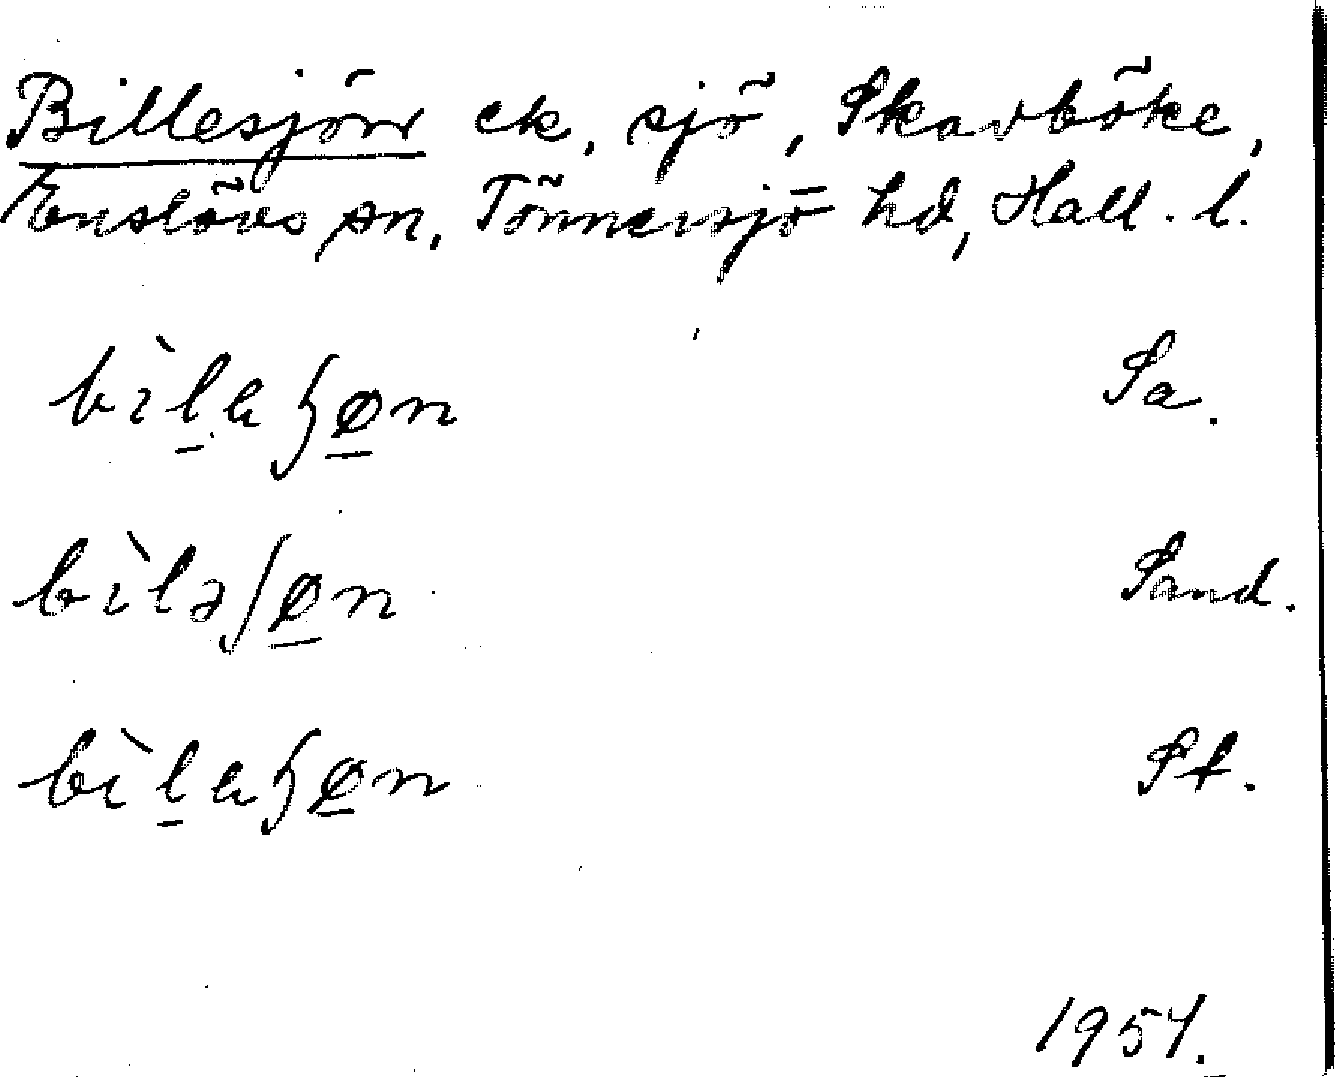 Billesjön ek, sjö, Skavböke,
Enslövs sn, Tönnersjö hd, Hall. l.
bìl̠aɧø̠n Sa.
bìləʃø̠n Sand.
bìl̠aɧø̠n St.
1954.